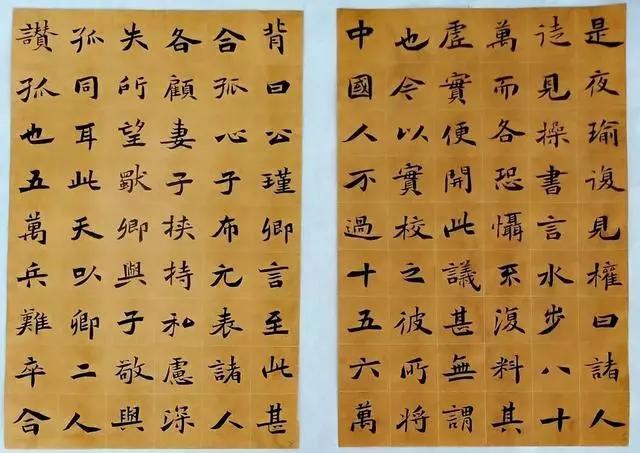 是夜瑜復見權曰諸人
徒見操書言水步八十
萬而各恐懾不復料其
虛實便開此議甚無謂
也今以實校之彼所將
中國人不過十五六萬
背曰公瑾卿言至此甚
合孤心子布元表諸人
各顧妻子挾持私慮深
失所望獨卿與子敬與
孤同耳此天以卿二人
讚孤也五萬兵難卒合